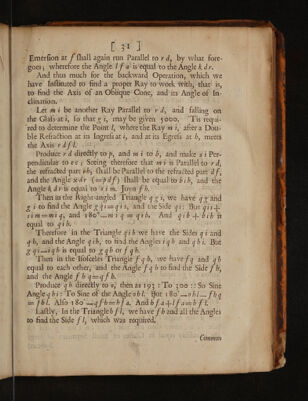 [ 31 ]
Emersion at f shall again run Parallel to r d, by what fore-
goes; wherefore the Angle l f a is equal to the Angle k d r.
And thus much for the backward Operation, which we
have Instituted to find a proper Ray to work with, that is,
to find the Axis of an Oblique Cone, and its Angle of In-
clination.
Let m i be another Ray Parallel to r d, and falling on
the Glass at i, so that g i, may be given 5000. 'Tis requi-
red to determine the Point l, where the Ray m i, after a Dou-
ble Refraction at its Ingress at i, and at its Egress at b, meets
the Axis r d f l.
Produce r d directly to p, and m i to b, and make s i Per-
pendicular to e c; Seeing therefore that m i is Parallel to r d,
the refracted part i b, shall be Parallel to the refracted part d f,
and the Angle x d r (= p d f) shall be equal to b i h, and the
Angle k d r is equal to s i m. Joyn f h.
Then in the Right-angled Triangle q g i, we have q g and
g i to find the Angle g q i = q i s, and the Side q i: But q i s +
s i m = m i q, and 180° — m i q = q i b. And q i b + b i h is
equal to q i h.
Therefore in the Triangle q i h we have the Sides q i and
q h, and the Angle q i h, to find the Angles i q h and q h i. But
g q i — i q h is equal to g q h or f q h.
Then in the Isosceles Triangle f q h, we have f q and q h
equal to each other, and the Angle f q h to find the Side f h,
and the Angle f h q = q f h.
Produce q h directly to o, then as 193 : To 300 :: So Sine
Angle q h i : To Sine of the Angle o h l. But 180° — o h l — f h q
= f h l. Also 180° — q f h = h f a. And h f a + l f a = h f l
Lastly, In the Triangle h f l, we have f h and all the Angles
to find the Side f l, which was required.
Common